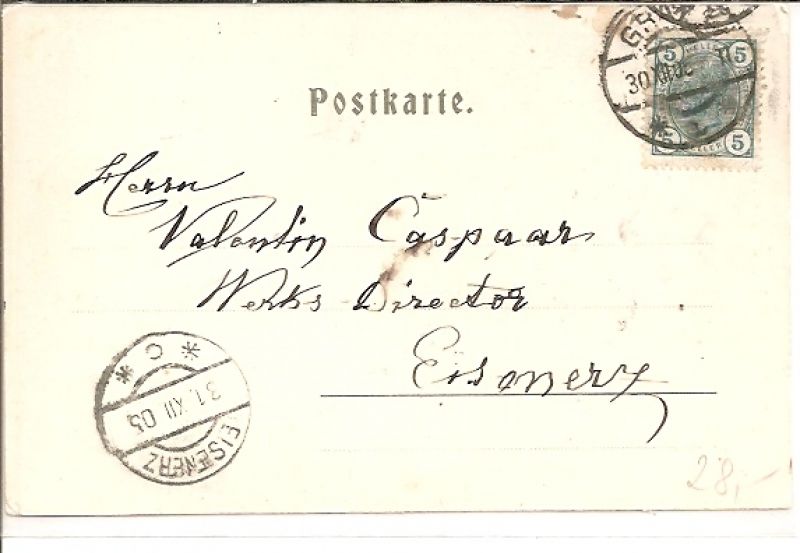 Postkarte.
5 HELLER 5
30 XII 05
5 HELLER 5
Herrn
Valentin Caspaar
Werks Director
Eisenerz
* C *
31. XII 05
EISENERZ
28,-